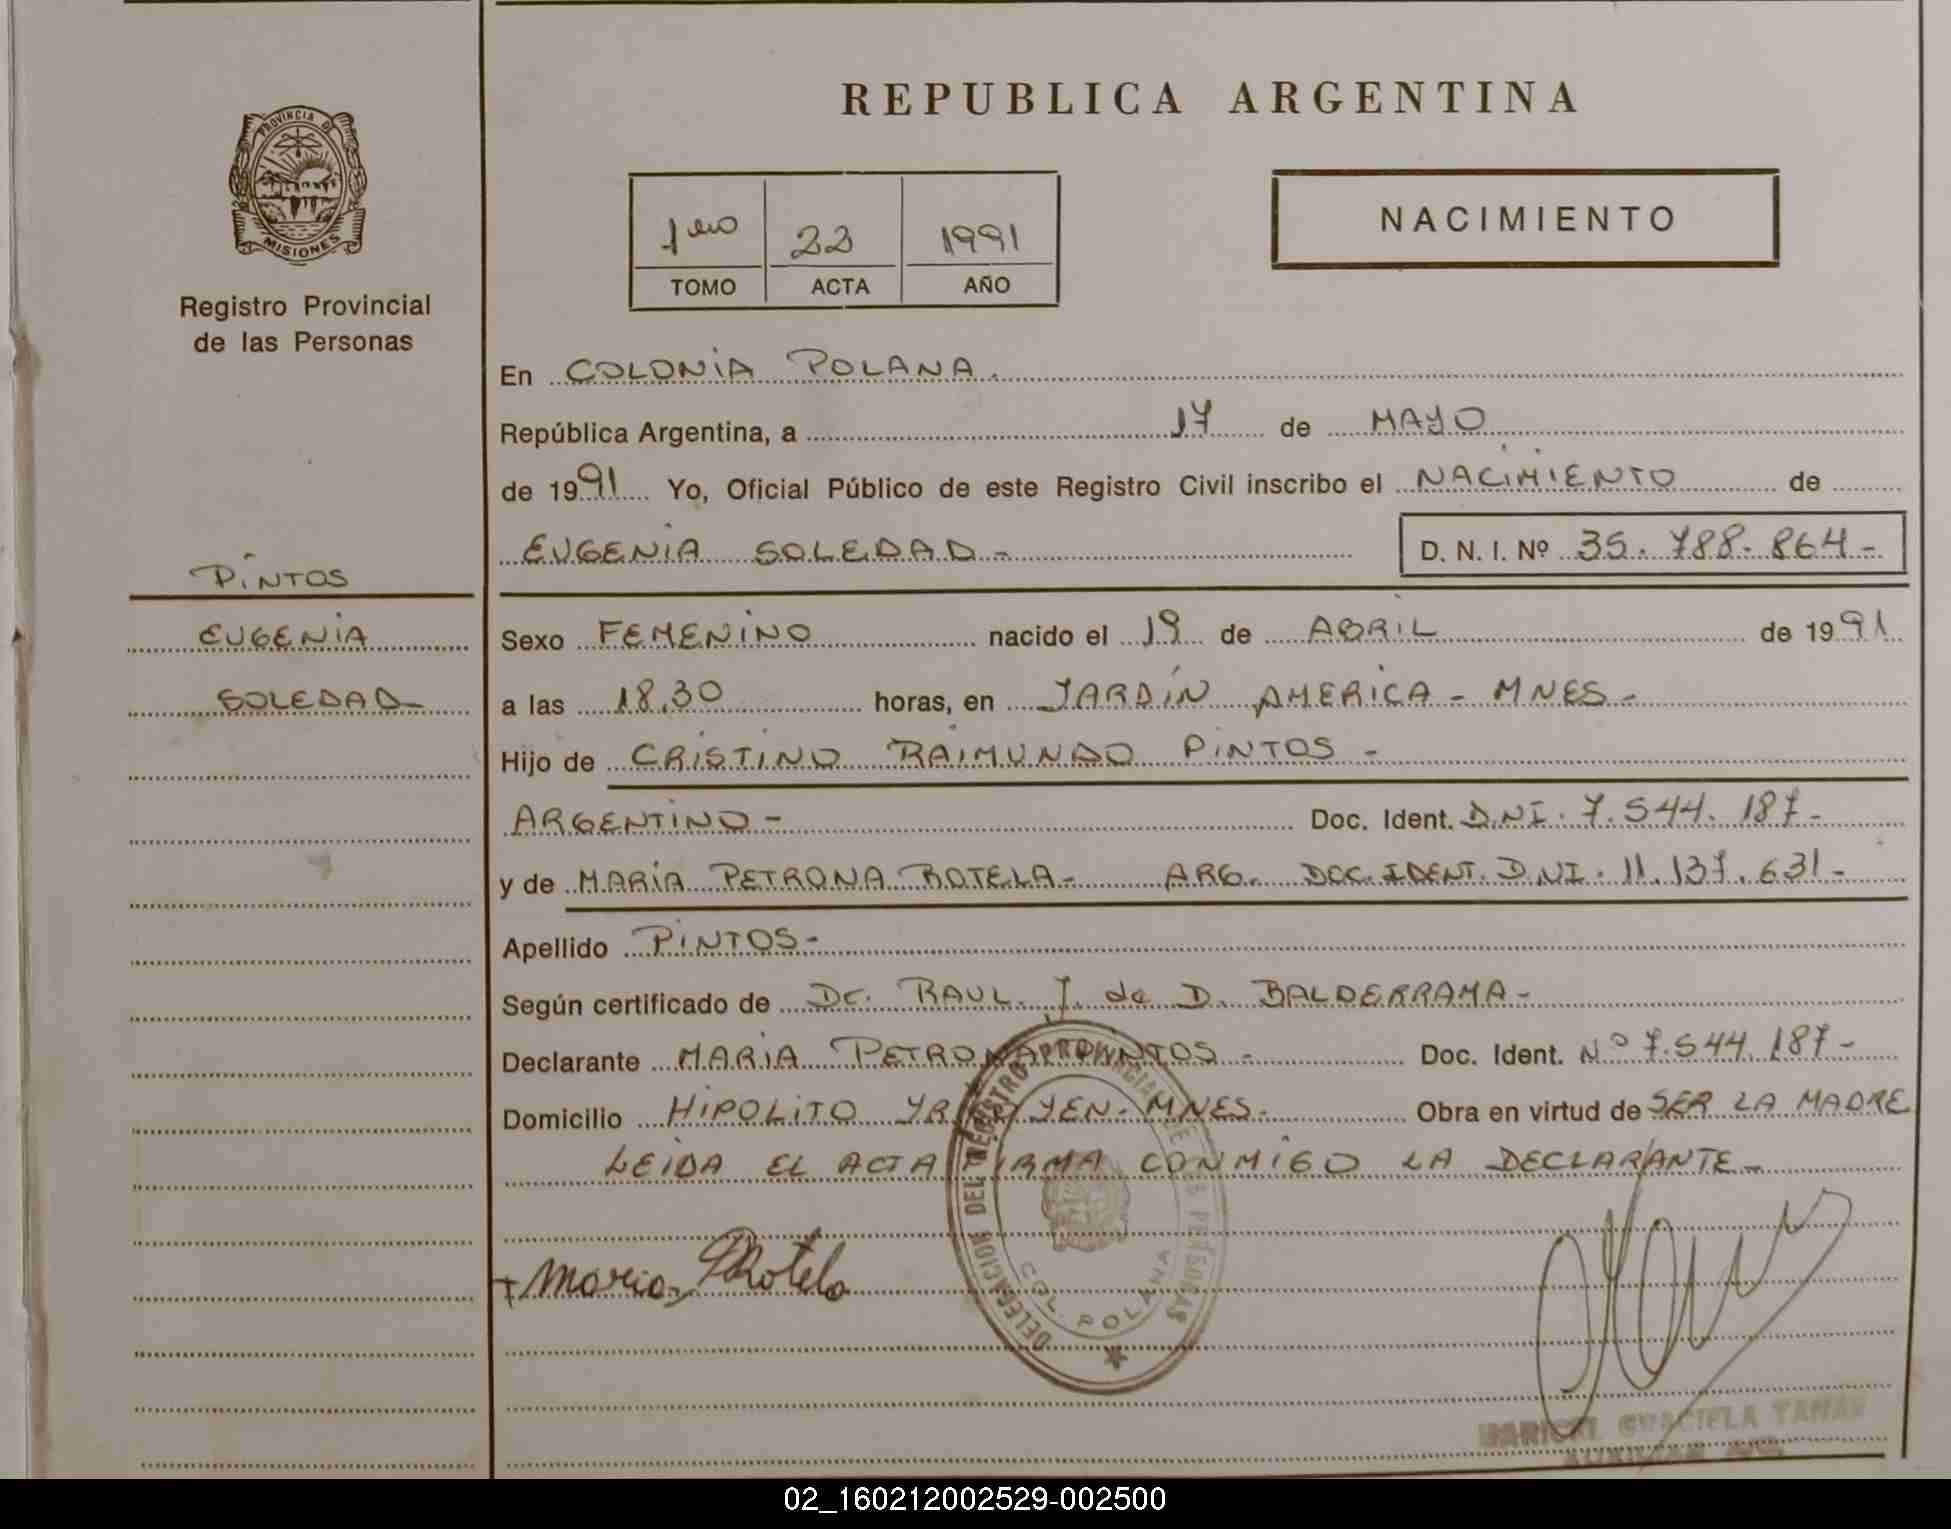 REPUBLICA ARGENTINA
PROVINCIA DE
MISIONES
Registro Provincial
de las Personas
1ero 22 1991
TOMO ACTA AÑO
NACIMIENTO
En COLONIA POLANA.
República Argentina, a 17 de MAYO
de 1991 Yo, Oficial Público de este Registro Civil inscribo el NACIMIENTO de
EUGENIA SOLEDAD- D. N. I. Nº 35.788.864-
PINTOS
EUGENIA
SOLEDAD
Sexo FEMENINO nacido el 19 de ABRIL de 1991
a las 18,30 horas, en JARDÍN AMERICA - MNES-
Hijo de CRISTINO RAIMUNDO PINTOS -
ARGENTINO- Doc. Ident. D.NI. 7.544.187-
y de MARÍA PETRONA ROTELA- ARG. DOC. IDENT. D.NI. 11.137.631-
Apellido PINTOS-
Según certificado de Dr. RAUL. J. de D. BALDERRAMA-
Declarante MARIA PETRONA PINTOS - Doc. Ident. Nº 7.544.187-
Domicilio HIPOLITO YRIGOYEN-MNES- Obra en virtud de SER LA MADRE
LEIDA EL ACTA FIRMA CONMIGO LA DECLARANTE-
Maria P Rotela
DELEGACION DEL REGISTRO PROVINCIAL DE LAS PERSONAS
COL. POLANA
GRACIELA
02_160212002529-002500